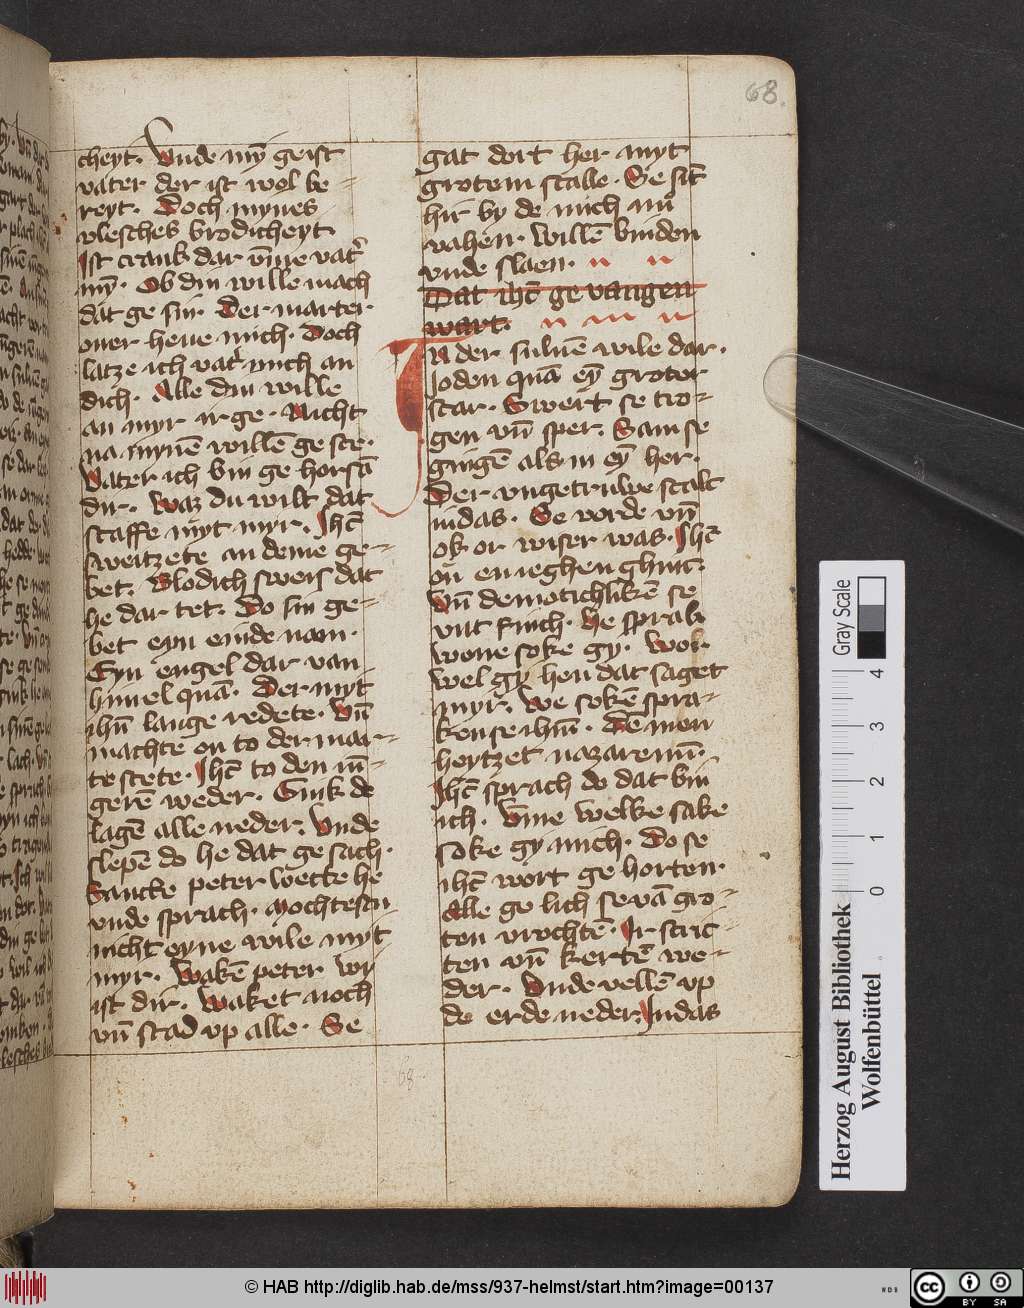 68.
cheyt. Vnde mȳ geist
vater der ist wol be-
reyt. Doch mynes
vlesches brodicheyt
Ist crank dar v̄me vat̉
mȳ. Ob din wille mach
dat ge sin. Der marter
ouer heue mich. Doch
latze ich vat̉ mich an
dich. Alle din wille
an myr irge. Nicht
na mynē willē ge sce.
Vater ich bin ge horsā
dir. Waz du wilt dat
scaffe myt myr. Ihc̄
sweitzete an deme ge-
bet. Blodich sweis dat
he dar let. Do sin ge-
bet eyn einde nam.
Eyn engel dar van
himel quā. Der myt
ihū lange redete. Vn̄
machte on to der mar-
te stete. Ihc̄ to den iū-
gerē weder. Gink de
lagē alle neder. Vnde
slepē do he dat ge sach.
Sancte peter wecke he
vnde sprach. Mochtestu
nicht eyne wile myt
myr. Wakē peter wy
ist dir. Waket noch
vn̄ stad vp alle. Se
gat dort her myt
grotem scalle. Se sīt
hir by de mich nu
vahen. Willē binden
vnde slaen.
Dat ihc̄ ge vangen
wart.
In der suluē wile dar.
Joden quā eȳ groter
scar. Swert se tro-
gen vn̄ sper. Sam se
gingē als in eȳ her.
Der vngetruwe scalc
iudas. Se vorde vn̄
ok or wiser was. Ihc̄
on eniegen ghinc.
Vn̄ demotichlikē se
vnt finch. He sprak
wene soke gy. Wor
wel gy hen dat saget
myr. We sokē spra-
ken se ihm̄. Dē men
heytzet nazarenū.
Ihc̄ sprach do dat bin
ich. V̄me welke sake
soke gy mich. Do se
ihc̄ wort ge horten.
Alle ge lich se vā gro-
ten vrochtē. Ir scric-
ten vn̄ kertē we-
der. Vnde vellē vp
de erde neder. Iudas
68
Herzog August Bibliothek
Wolfenbüttel
Gray Scale
0 1 2 3 4
© HAB http://diglib.hab.de/mss/937-helmst/start.htm?image=00137
WDB
cc BY SA